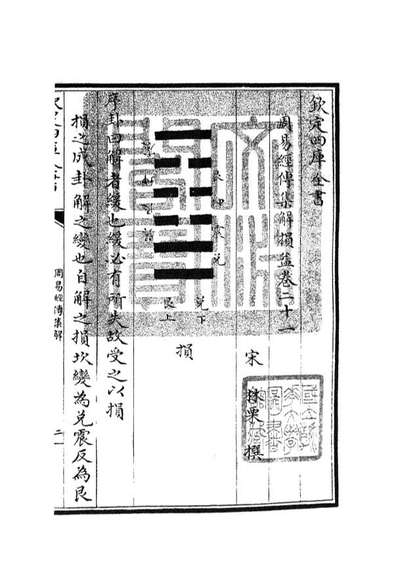 欽定四庫全書
周易經傳集解損益卷二十一
宋 林栗 撰
坤震兌
兌下
艮上
損
序卦曰解者緩也緩必有所失故受之以損
損之成卦解之變也自解之損坎變為兌震反為艮
欽定四庫全書
周易經傳集解